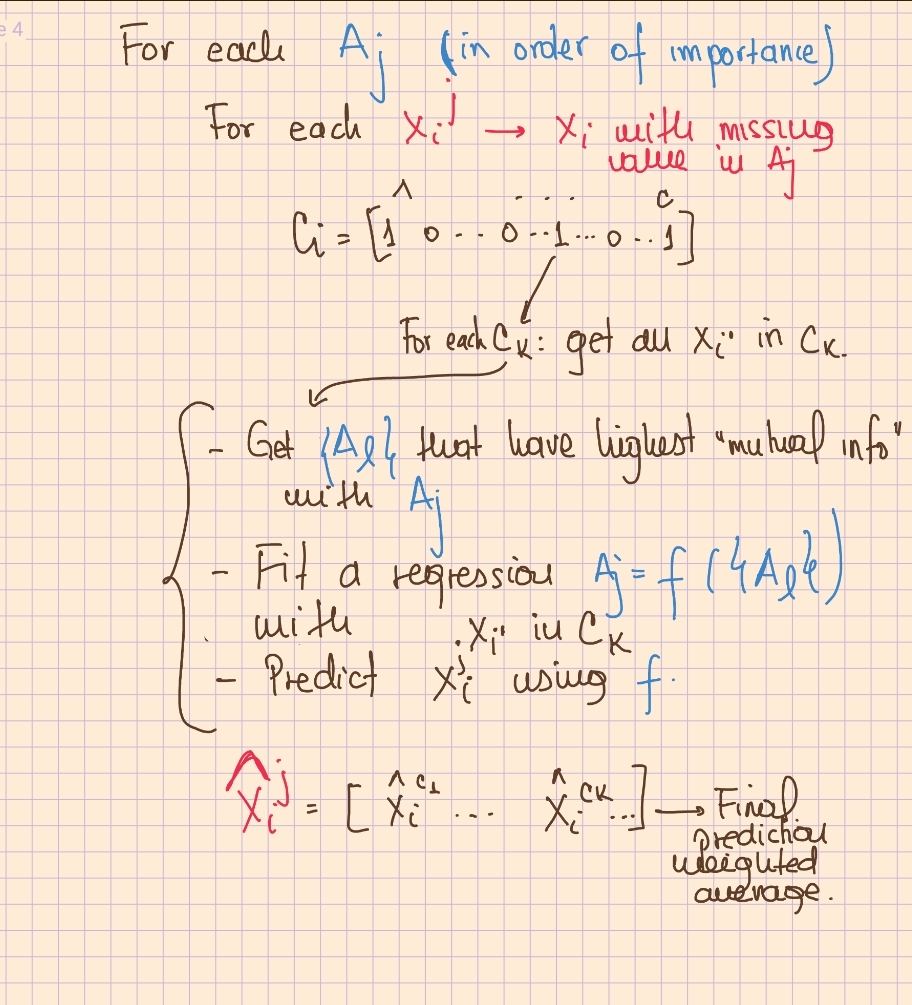 e 4
For each Aj (in order of importance)
For each xᵢʲ → xᵢ with missing
value in Aj
^ . . . . c
Cᵢ = [1 0 - - 0 -- 1 --- 0 -- 1]
For each Cₖ: get all xᵢ' in Cₖ.
- Get {Aℓ} that have highest "mutual info"
with Aj
- Fit a regression Aj = f ({Aℓ})
with . xᵢ' in Cₖ
- Predict xᵢʲ using f.
x̂ᵢʲ = [ x̂ᵢ^C₁ ... x̂ᵢ^CK ...] → Final
prediction
weighted
average.